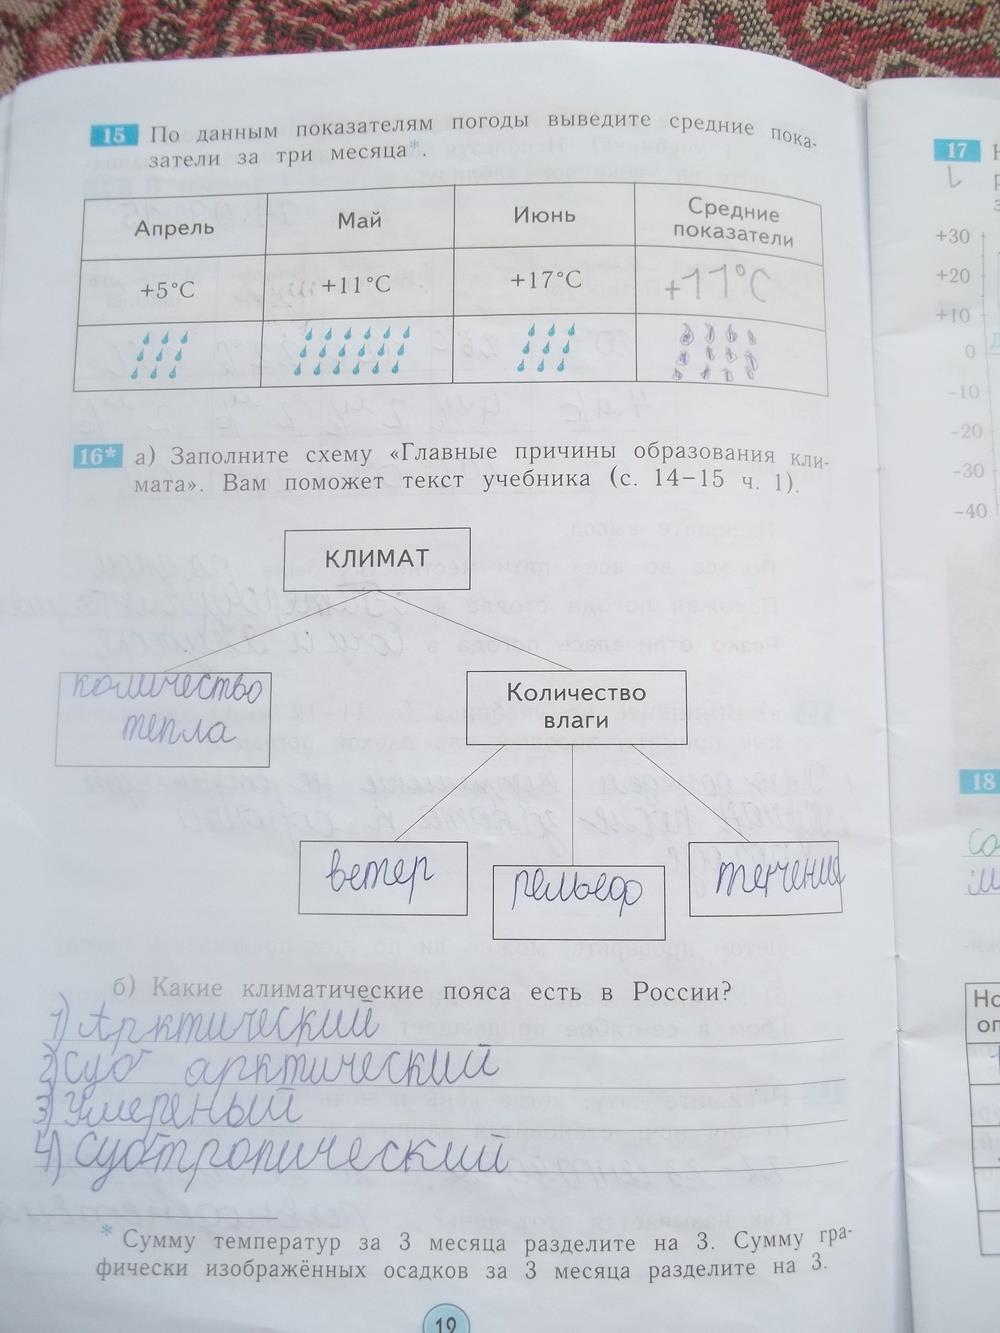 15 По данным показателям погоды выведите средние пока-
затели за три месяца*.
Апрель Май Июнь Средние
показатели
+5°C +11°C +17°C +11°C
16* а) Заполните схему «Главные причины образования кли-
мата». Вам поможет текст учебника (с. 14–15 ч. 1).
КЛИМАТ
количество
тепла
Количество
влаги
ветер рельеф течение
б) Какие климатические пояса есть в России?
1) Арктический
2) Суб арктический
3) Умереный
4) Субтропический
* Сумму температур за 3 месяца разделите на 3. Сумму гра-
фически изображённых осадков за 3 месяца разделите на 3.
17
+30
+20
+10
0
-10
-20
-30
-40
18